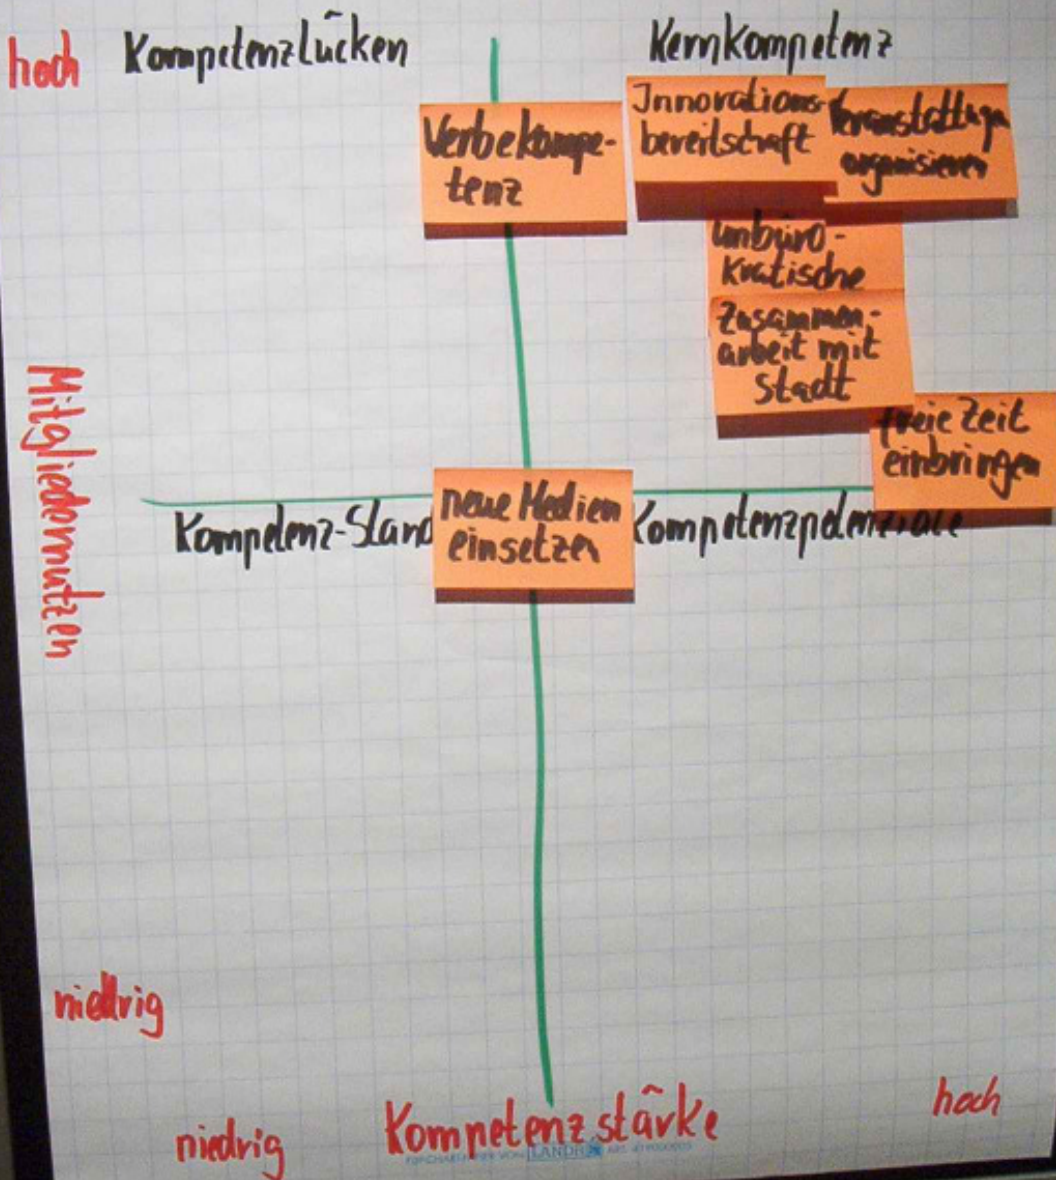 hoch
Kompetenzlücken
Kernkompetenz
Werbekompe-
tenz
Innovations-
bereitschaft
organisieren
unbüro-
kratische
Zusammen-
arbeit mit
Stadt
freie Zeit
einbringen
Mitgliedernutzen
Kompetenz-Stand
neue Medien
einsetzen
Kompetenzpotenziale
niedrig
niedrig
Kompetenzstärke
hoch
LANDRÉ